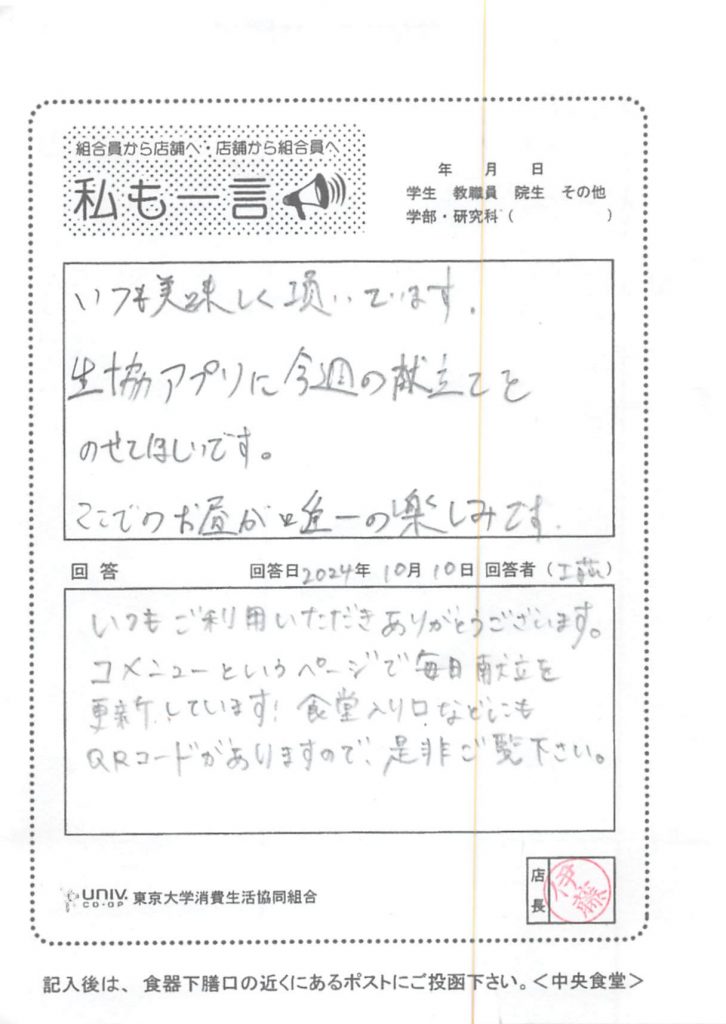 組合員から店舗へ・店舗から組合員へ
私も一言
年 月 日
学生 教職員 院生 その他
学部・研究科（ ）
いつも美味しく頂いています.
生協アプリに今週の献立てを
のせてほしいです。
ここでのお昼が唯一の楽しみです.
回答 回答日2024年 10月 10日 回答者（工藤）
いつもご利用いただきありがとうございます。
コメニューというページで毎日献立を
更新しています! 食堂入り口などにも
QRコードがありますので、是非ご覧下さい。
UNIV. CO-OP 東京大学消費生活協同組合
店長 伊藤
記入後は、食器下膳口の近くにあるポストにご投函下さい。＜中央食堂＞